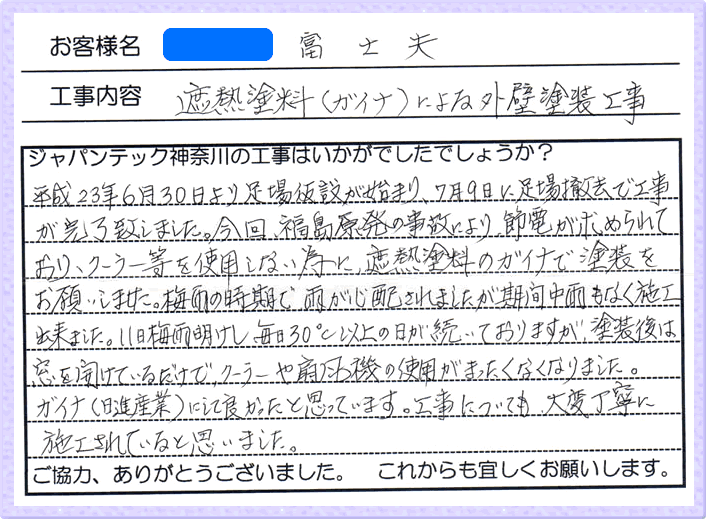 お客様名 富士夫
工事内容 遮熱塗料(ガイナ)による外壁塗装工事
ジャパンテック神奈川の工事はいかがでしたでしょうか？
平成23年6月30日より足場仮設が始まり、7月9日に足場撤去で工事
が完了致しました。今回、福島原発の事故により、節電が求められて
おり、クーラー等を使用しない為に、遮熱塗料のガイナで塗装を
お願いしました。梅雨の時期で雨が心配されましたが期間中雨もなく施工
出来ました。11日梅雨明けし毎日30℃以上の日が続いておりますが、塗装後は
窓を開けているだけで、クーラーや扇风機の使用がまったくなくなりました。
ガイナ(日進産業)にして良かったと思っています。工事についても、大変丁寧に
施工されていると思いました。
ご協力、ありがとうございました。 これからも宜しくお願いします。